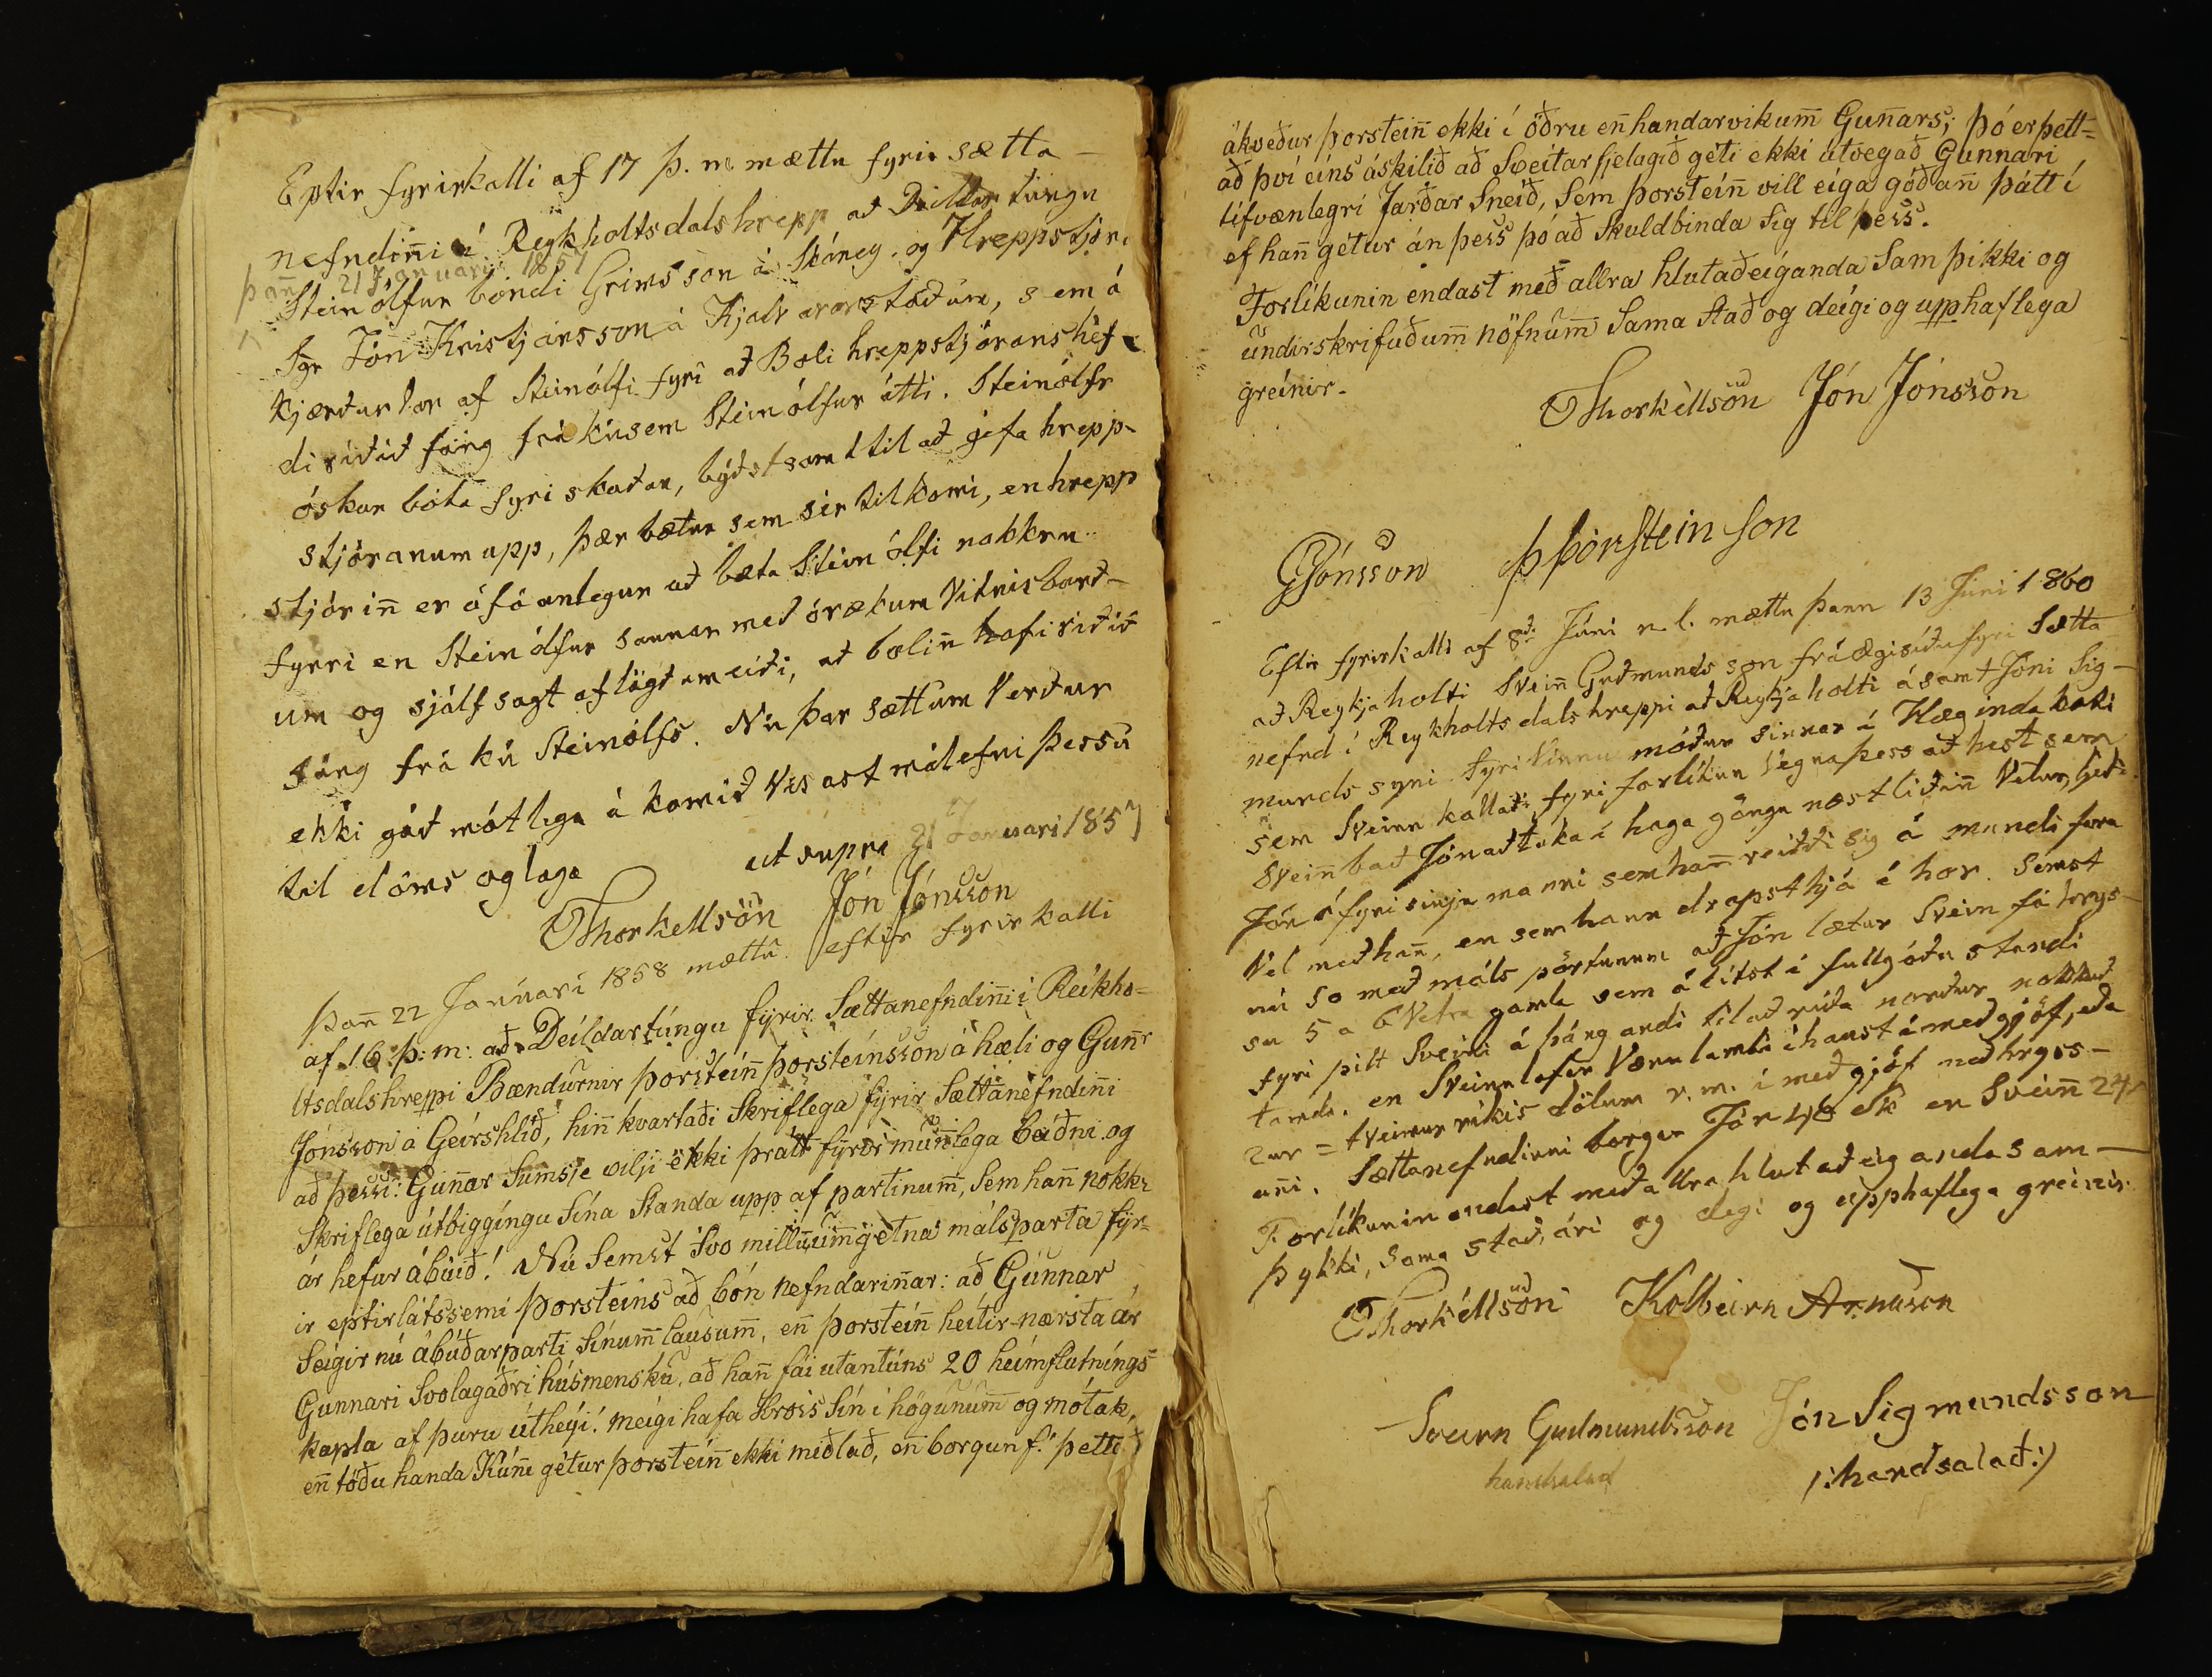 Eptir fyrirkalli af 17 þ. m mættu fyrir sætta-
nefndiñi í Reykholtsdalshrepp að Deildartúngu
þañ 21 Januari 1857
Steinólfur bóndi Grímsson á Skáney, og Hreppstjóri
Sgr Jón Kristjánsson á Kjalvararstöðum, sem á
kjærður var af Steinólfi fyri að Boli hreppstjórans hef-
di riðið fáng frá kú sem Steinólfur átti. Steinólfr
óskar bóta fyri skaðan, býðst samt til að gefa hrepp-
stjóranum upp, þær bætur sem sér til komi, en hrepp
stjóriñ er ófáanlegur að bæta Steinólfi nokkru
fyrri en Steinólfur sannar með órækum Vitnisburð-
um og sjálfsagt aflögðum eiði, að boliñ hafi riðið
fáng frá kú Steinólfs. Nú þar sættum Verður
ekki gáð mótlega á komið Vísast málefni þessu
til dóms og laga
ut supra 21 Januari 1857
Thorkellsön Jón Jónsson
Þañ 22 Janúari 1858 mættu eftir fyrirkalli
af 16. þ: m: að Deildartúngu fyrir Sættanefndiñi í Reikho-
ltsdalshreppi Bændurnir Þorsteiñ Þorsteinsson á hæli og Guñr
Jónsson á Geirshlíð, hiñ kvartaði Skriflega fyrir Sættanefndiñi
að þessi: Guñar Sumsje vilji ekki þrátt fyrir muñlega beiðni og
Skriflega útbiggíngu Sína Standa upp af partinum̃, Sem hañ nokkr
ár hefur ábúið! Nú Semst Svo millum̃ gétna málsparta fyr-
ir eptirlátssemi Þorsteins að bón nefndariñar: að Gunnar
Seigir nú ábúðarparti Sínum̃ lausum̃, eñ Þorsteiñ heitir næsta ár
Gunnari Svolagaðri húsmensku, að hañ fái utantúns 20 heimflutníngs
kapla af þuru útheyi! meigi hafa Hross Sín í högunum̃ og mótak,
eñ töðu handa Kúñi gétur Þorsteiñ ekki miðlað, eñ borgun f. þetti
ákveður Þorsteiñ ekki í öðru eñ handarvikum̃ Guñars; þó er þett-
að því eins áskilið að Sveitarfjelagið géti ekki útvegað Gunnari
lífvænlegri Jarðar Sneið, Sem Þorsteiñ vill eiga góðañ þátt í
ef hañ gétur án þess þó að Skuldbinda Sig til þess.
Forlíkunin endast með allra hlutaðeiganda Samþikki og
undirskrifuðum̃ nöfnum̃ Sama Stað og deigi og upphaflega
greinir.
Thorkellsön Jón Jónsson
GJónsson ÞÞórsteinson
Eftir fyrirkalli af 8da Júni n. l. mættu þann 13 Júni 1860
að Reykjaholti Sveiñ Guðmundsson frá Ægisíðu fyri Sætta
nefnd í Reykholtsdalshreppi að Reykjaholti ásamt Jóni Sig-
mundssyni fyri Vinnu móður sinnar á Hæginda koti
sem Sveinn kallaði fyri forlíkun Vegna þess að hest sem
Sveiñ bað Jón að taka í haga göngu næstliðiñ Vetur, ljeði
Jón á fyri sinju manni sem hañ reiddi sig á mundi fara
Vel með hañ, en sem hann drapst hjá í hor. Semst
nú so með máls pörtunum að Jón lætur Svein fá hrys-
su 5 a 6 Vetra gamla sem álítst í fullgóðu standi
fyri pilt Sveini á þángandi til að ríða norður nokkuð
tamda, en Sveinn lofar Vænu lambi í haust á með gjöf, eða
2ur = tveimur ríkis dölum r. m. í með gjöf með hryss-
uñi. Sættanefndinni borgar Jón 48 sk en Sveiñ 24
Forlíkunin endast með allra hlutaðeiganda sam-
þykki, sama stað, ári og degi og upphaflega greinir
Thorkéllsön Kolbeirn Arnason
Sveirn Gudmundsson Jón Sigmundsson
handsalad /:handsalað:/